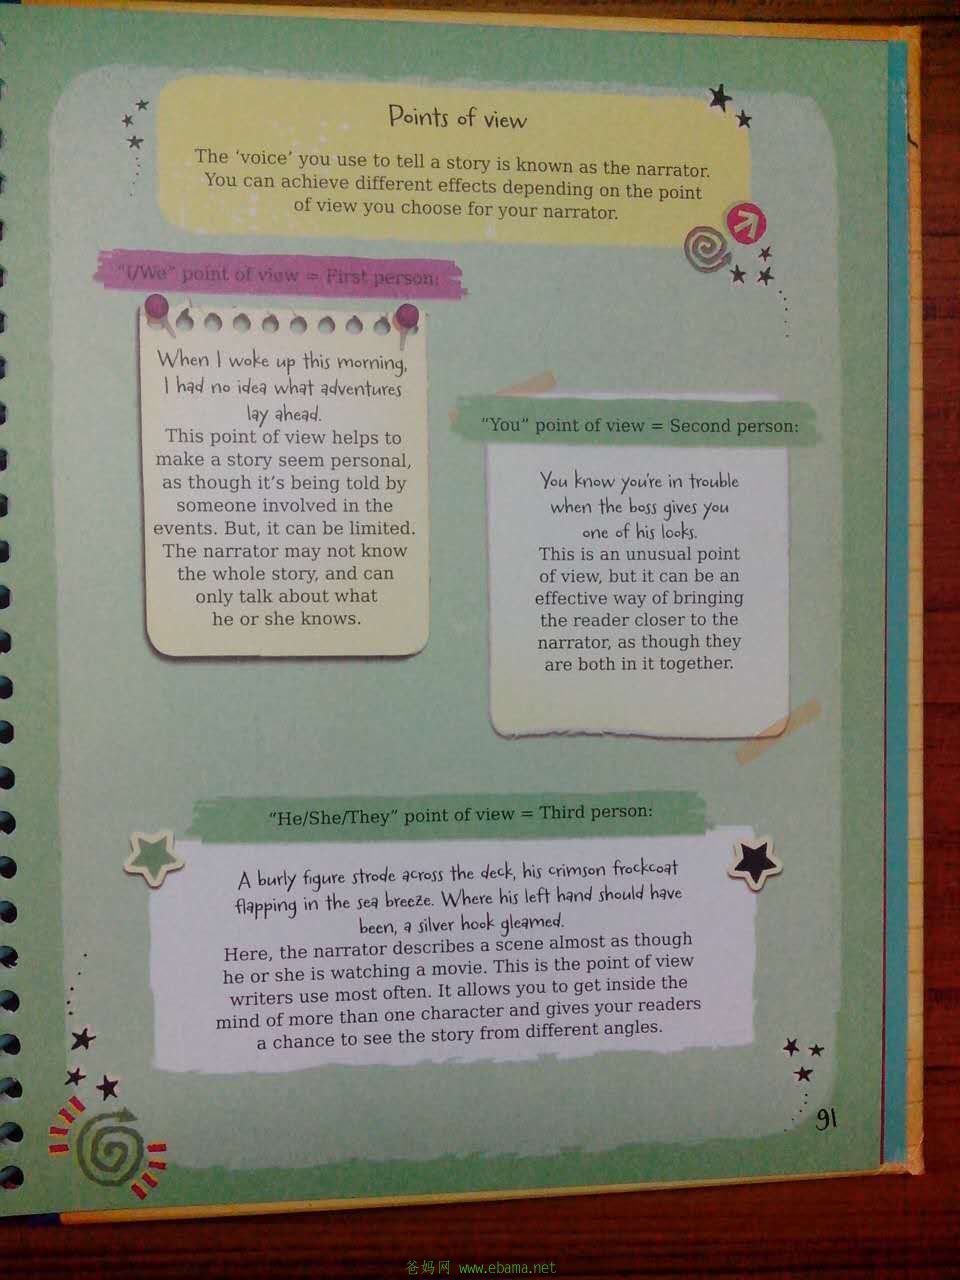 Points of view
The ‘voice’ you use to tell a story is known as the narrator.
You can achieve different effects depending on the point
of view you choose for your narrator.
“I/We” point of view = First person:
When I woke up this morning,
I had no idea what adventures
lay ahead.
This point of view helps to
make a story seem personal,
as though it’s being told by
someone involved in the
events. But, it can be limited.
The narrator may not know
the whole story, and can
only talk about what
he or she knows.
“You” point of view = Second person:
You know you’re in trouble
when the boss gives you
one of his looks.
This is an unusual point
of view, but it can be an
effective way of bringing
the reader closer to the
narrator, as though they
are both in it together.
“He/She/They” point of view = Third person:
A burly figure strode across the deck, his crimson frockcoat
flapping in the sea breeze. Where his left hand should have
been, a silver hook gleamed.
Here, the narrator describes a scene almost as though
he or she is watching a movie. This is the point of view
writers use most often. It allows you to get inside the
mind of more than one character and gives your readers
a chance to see the story from different angles.
91
爸妈网 www.ebama.net